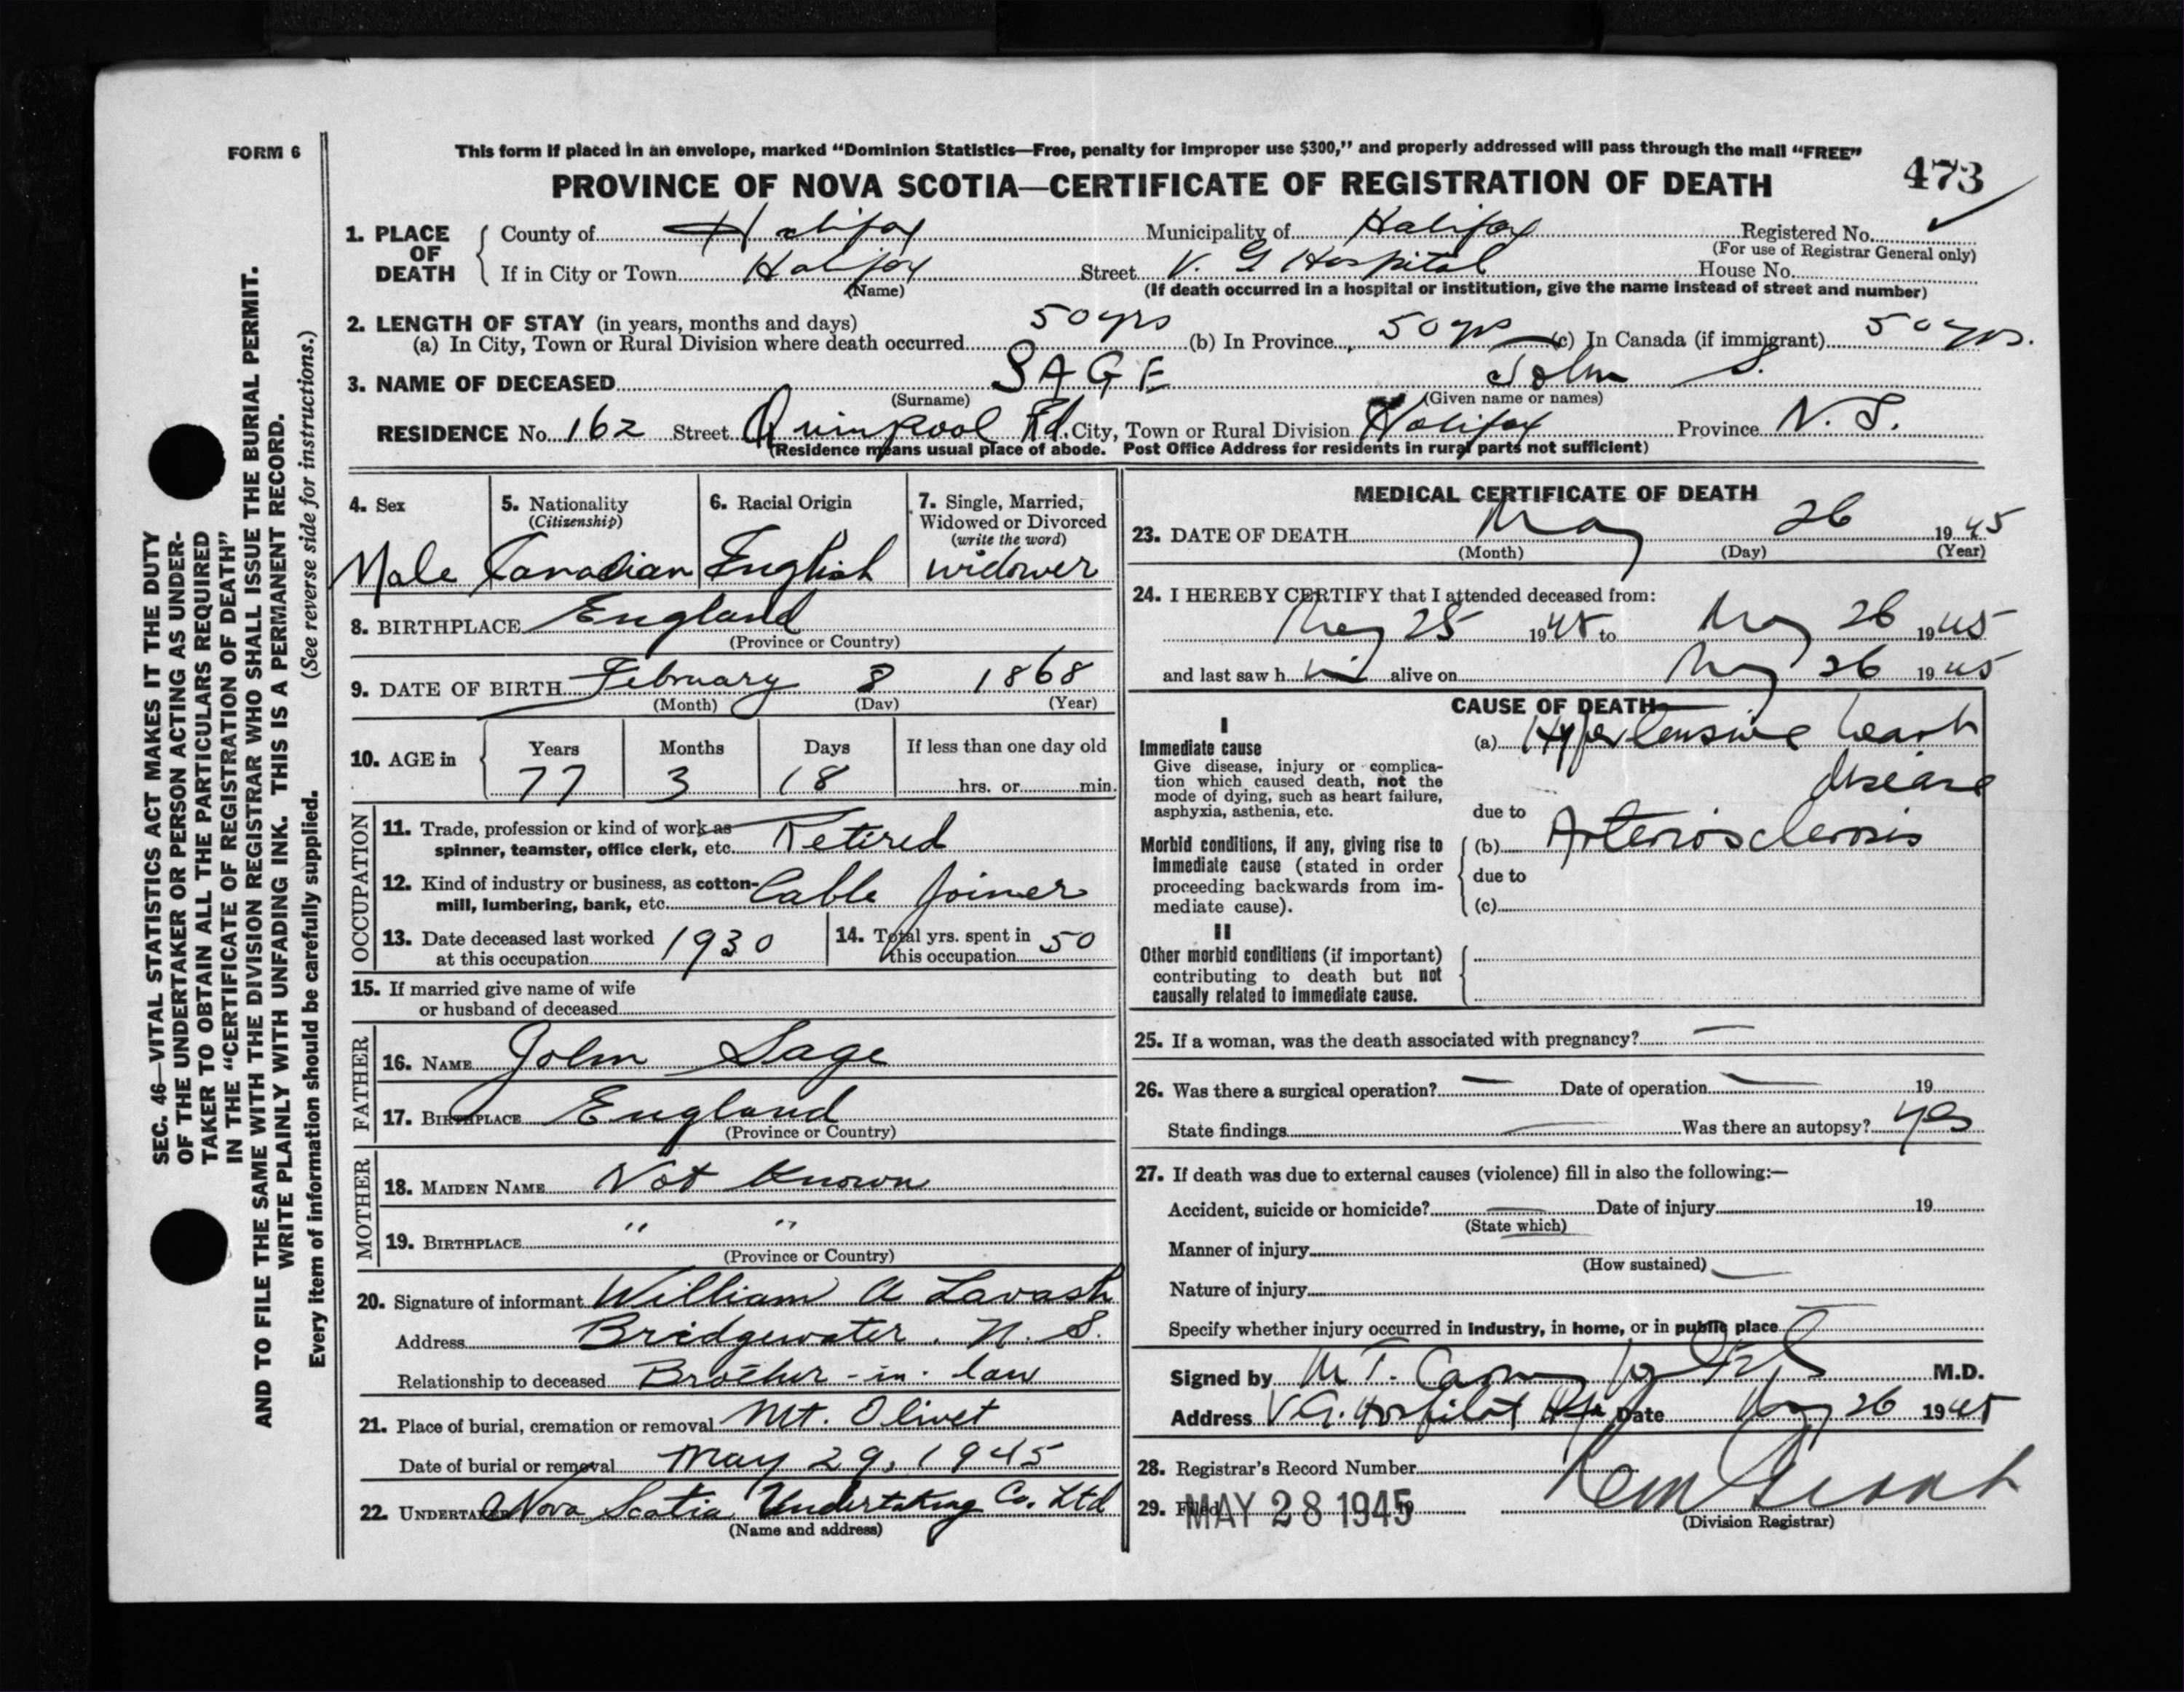 FORM 6
This form if placed in an envelope, marked “Dominion Statistics—Free, penalty for improper use $300,” and properly addressed will pass through the mail “FREE”
473
PROVINCE OF NOVA SCOTIA—CERTIFICATE OF REGISTRATION OF DEATH
1. PLACE OF DEATH
County of Halifax Municipality of Halifax Registered No.
(For use of Registrar General only)
If in City or Town Halifax Street V. G Hospital House No.
(Name) (If death occurred in a hospital or institution, give the name instead of street and number)
2. LENGTH OF STAY (in years, months and days)
(a) In City, Town or Rural Division where death occurred 50 yrs (b) In Province 50 yrs (c) In Canada (if immigrant) 50 yrs.
3. NAME OF DECEASED SAGE John S.
(Surname) (Given name or names)
RESIDENCE No. 162 Street Quinpool Rd. City, Town or Rural Division Halifax Province N. S.
(Residence means usual place of abode. Post Office Address for residents in rural parts not sufficient)
4. Sex
Male
5. Nationality
(Citizenship)
Canadian
6. Racial Origin
English
7. Single, Married,
Widowed or Divorced
(write the word)
widower
8. BIRTHPLACE England
(Province or Country)
9. DATE OF BIRTH February 8 1868
(Month) (Day) (Year)
10. AGE in
Years Months Days If less than one day old
77 3 18 hrs. or min.
OCCUPATION
11. Trade, profession or kind of work as
spinner, teamster, office clerk, etc. Retired
12. Kind of industry or business, as cotton-
mill, lumbering, bank, etc. Cable Joiner
13. Date deceased last worked
at this occupation 1930
14. Total yrs. spent in
this occupation 50
15. If married give name of wife
or husband of deceased
FATHER
16. NAME John Sage
17. BIRTHPLACE England
(Province or Country)
MOTHER
18. MAIDEN NAME Not Known
19. BIRTHPLACE " "
(Province or Country)
20. Signature of informant William A Lavash
Address Bridgewater, N. S.
Relationship to deceased Brother-in-law
21. Place of burial, cremation or removal Mt. Olivet
Date of burial or removal May 29, 1945
22. UNDERTAKER Nova Scotia Undertaking Co. Ltd
(Name and address)
MEDICAL CERTIFICATE OF DEATH
23. DATE OF DEATH May 26 1945
(Month) (Day) (Year)
24. I HEREBY CERTIFY that I attended deceased from:
May 25 1945 to May 26 1945
and last saw him alive on May 26 1945
CAUSE OF DEATH
I
Immediate cause
Give disease, injury or complica-
tion which caused death, not the
mode of dying, such as heart failure,
asphyxia, asthenia, etc.
(a) Hypertensive heart
disease
due to
Morbid conditions, if any, giving rise to
immediate cause (stated in order
proceeding backwards from im-
mediate cause).
(b) Arteriosclerosis
due to
(c)
II
Other morbid conditions (if important)
contributing to death but not
causally related to immediate cause.
25. If a woman, was the death associated with pregnancy? —
26. Was there a surgical operation? — Date of operation — 19
State findings — Was there an autopsy? yes
27. If death was due to external causes (violence) fill in also the following:—
Accident, suicide or homicide? — Date of injury 19
(State which)
Manner of injury
(How sustained)
Nature of injury
Specify whether injury occurred in industry, in home, or in public place
Signed by M T. M.D.
Address V.G. Hospital Hfx Date May 26 1945
28. Registrar's Record Number
29. Filed MAY 28 1945 19
(Division Registrar)
SEC. 46—VITAL STATISTICS ACT MAKES IT THE DUTY
OF THE UNDERTAKER OR PERSON ACTING AS UNDER-
TAKER TO OBTAIN ALL THE PARTICULARS REQUIRED
IN THE “CERTIFICATE OF REGISTRATION OF DEATH”
AND TO FILE THE SAME WITH THE DIVISION REGISTRAR WHO SHALL ISSUE THE BURIAL PERMIT.
WRITE PLAINLY WITH UNFADING INK. THIS IS A PERMANENT RECORD.
Every item of information should be carefully supplied. (See reverse side for instructions.)